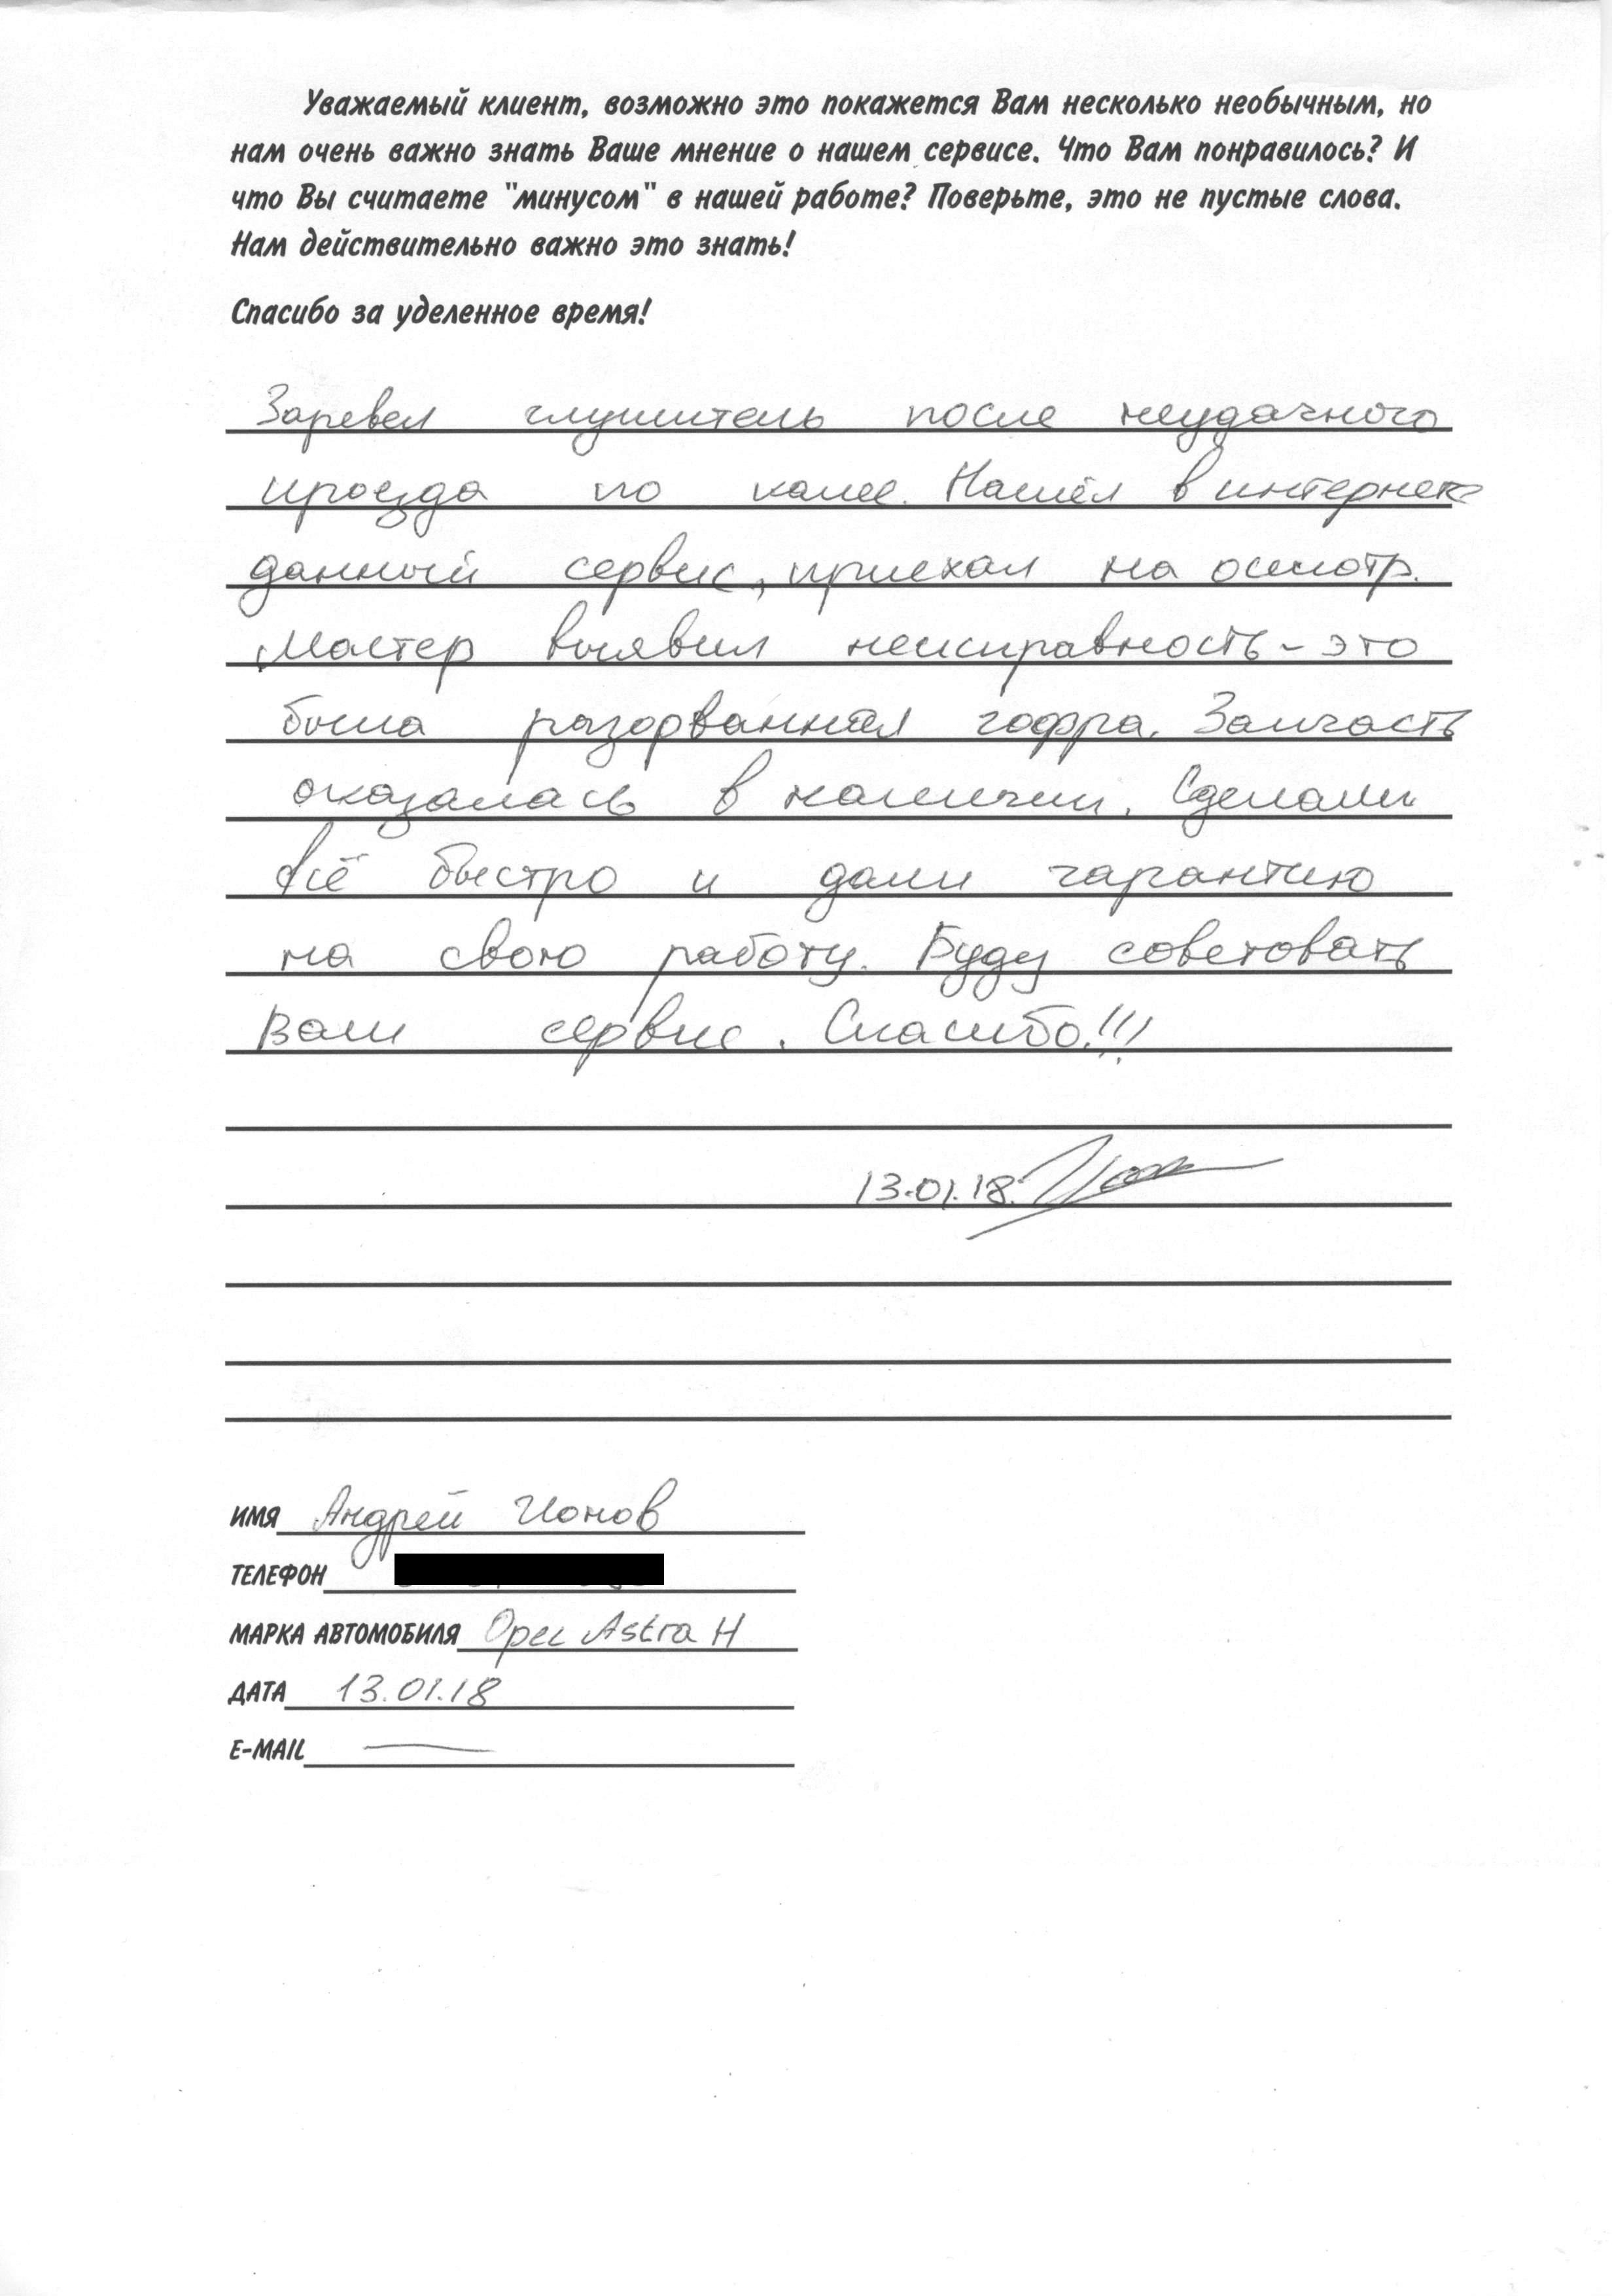 Уважаемый клиент, возможно это покажется Вам несколько необычным, но
нам очень важно знать Ваше мнение о нашем сервисе. Что Вам понравилось? И
что Вы считаете "минусом" в нашей работе? Поверьте, это не пустые слова.
Нам действительно важно это знать!
Спасибо за уделенное время!
Заревел глушитель после неудачного
проезда по колее. Нашёл в интернете
данный сервис, приехал на осмотр.
Мастер выявил неисправность - это
была разорванная гофра. Запчасть
оказалась в наличии. Сделали
всё быстро и дали гарантию
на свою работу. Буду советовать
Ваш сервис. Спасибо!!!
13.01.18.
ИМЯ Андрей Ионов
ТЕЛЕФОН
МАРКА АВТОМОБИЛЯ Opel Astra H
ДАТА 13.01.18
E-MAIL —